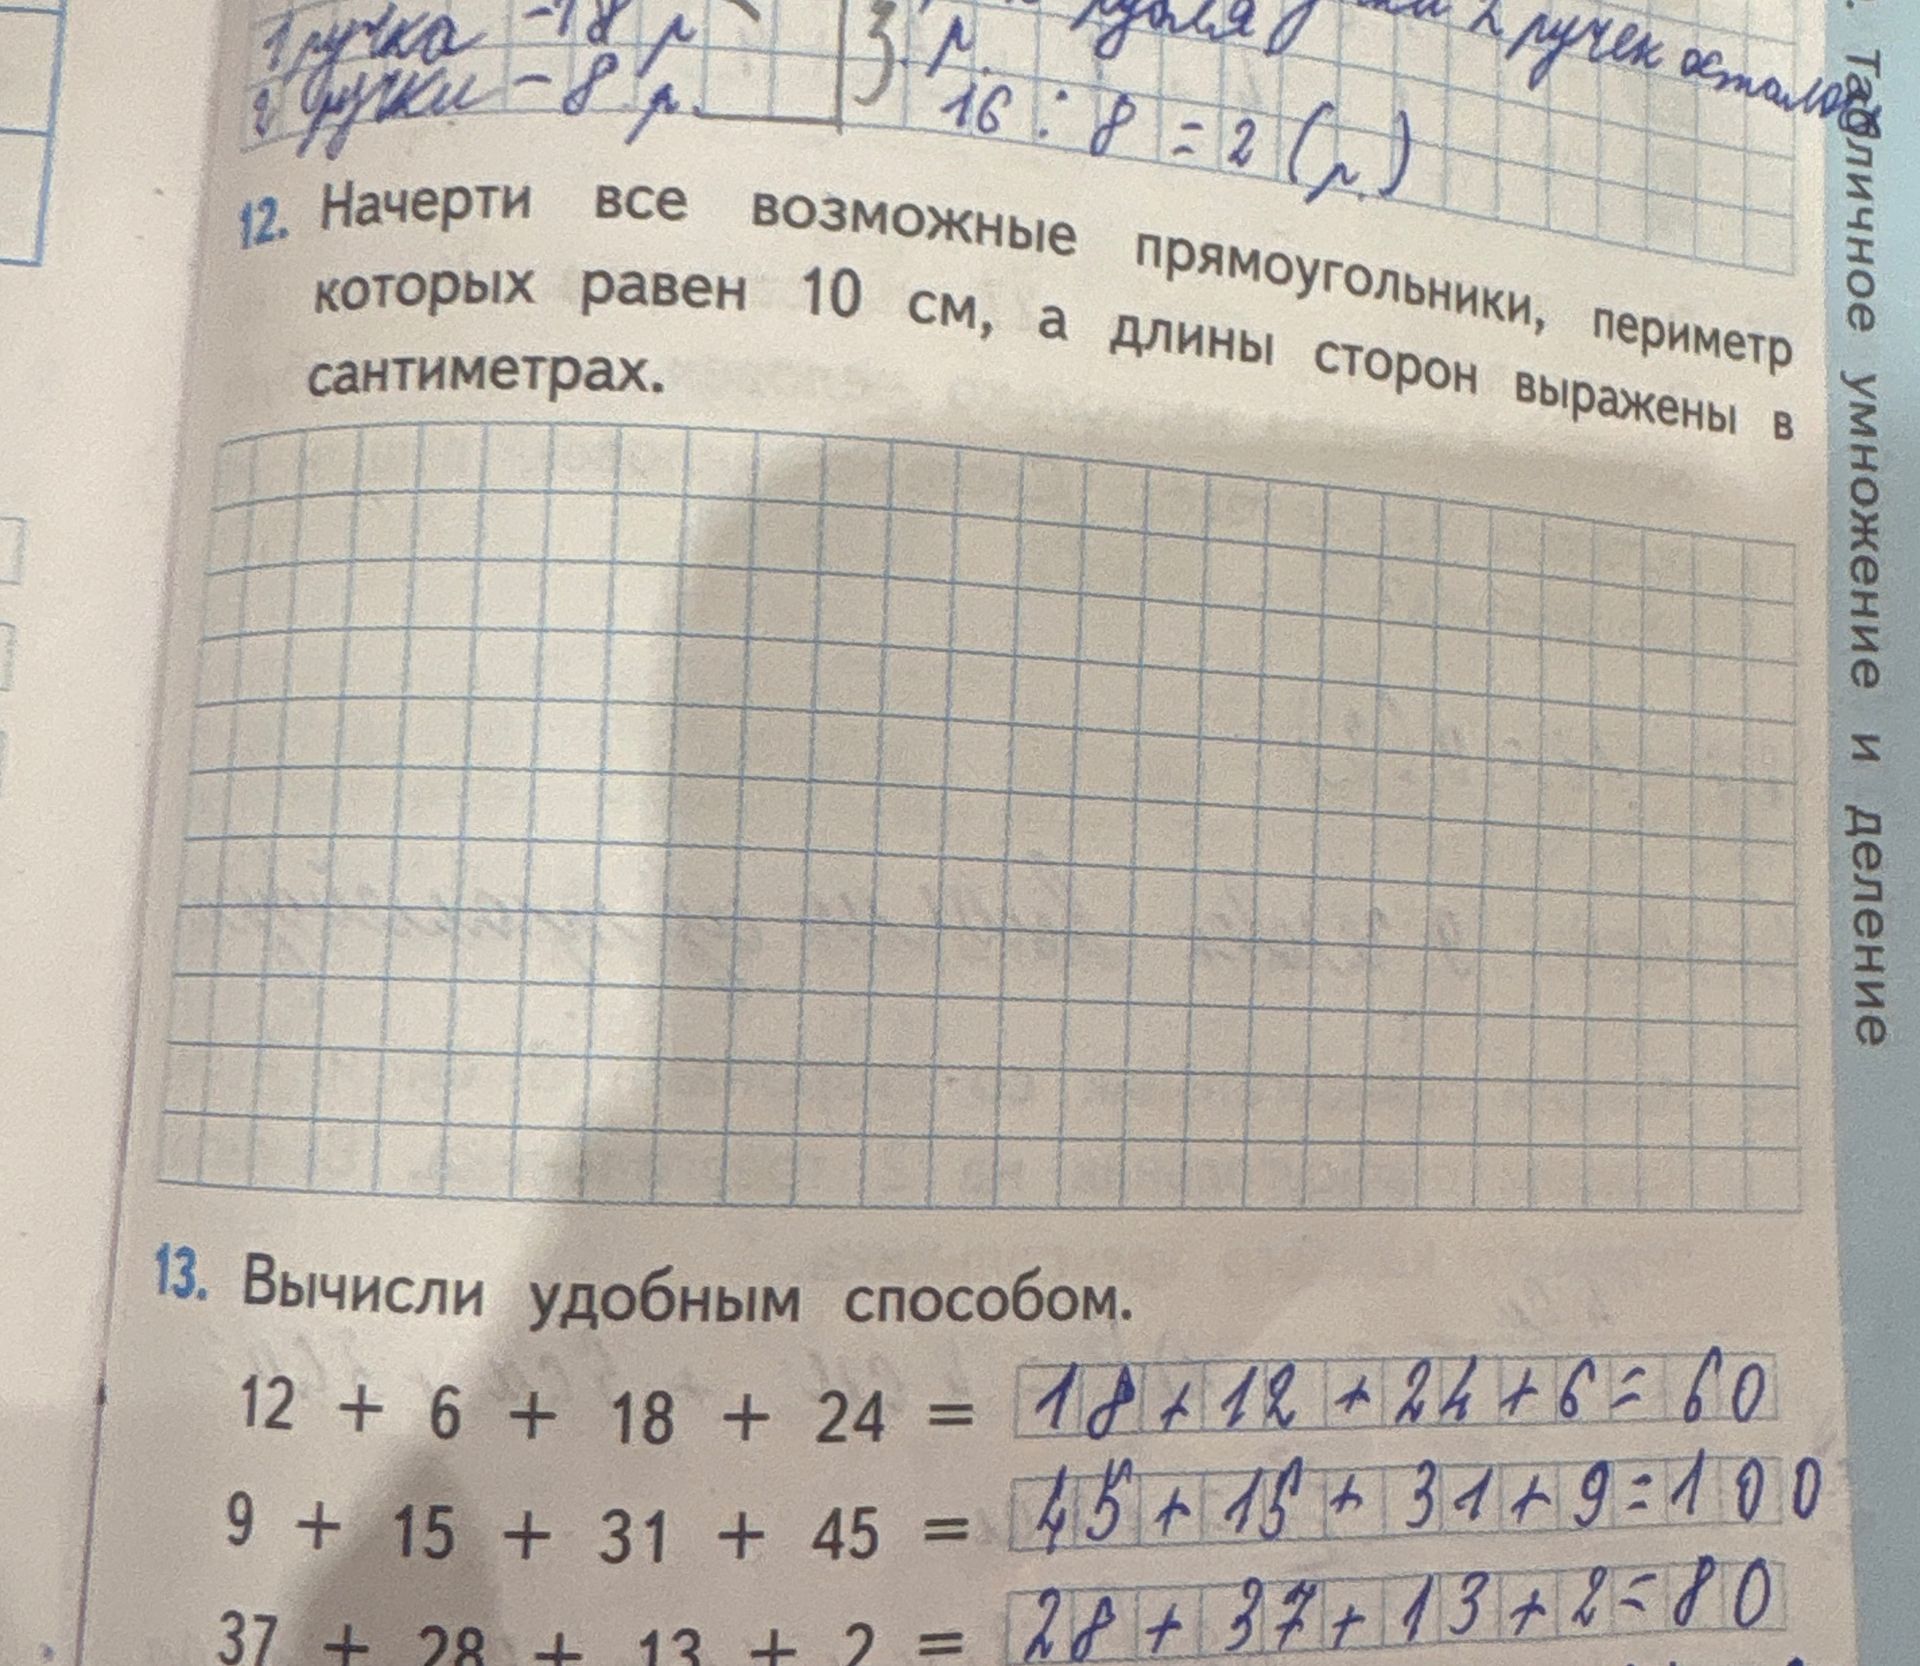 1 ручка - 18 р
2 ручки - 8 р.
3. р.
рубля 2 ручек осталось
16 : 8 = 2 (р.)
12. Начерти все возможные прямоугольники, периметр
которых равен 10 см, а длины сторон выражены в
сантиметрах.
13. Вычисли удобным способом.
12 + 6 + 18 + 24 = 18+12+24+6=60
9 + 15 + 31 + 45 = 45+15+31+9=100
37 + 28 + 13 + 2 = 28+37+13+2=80
Табличное умножение и деление